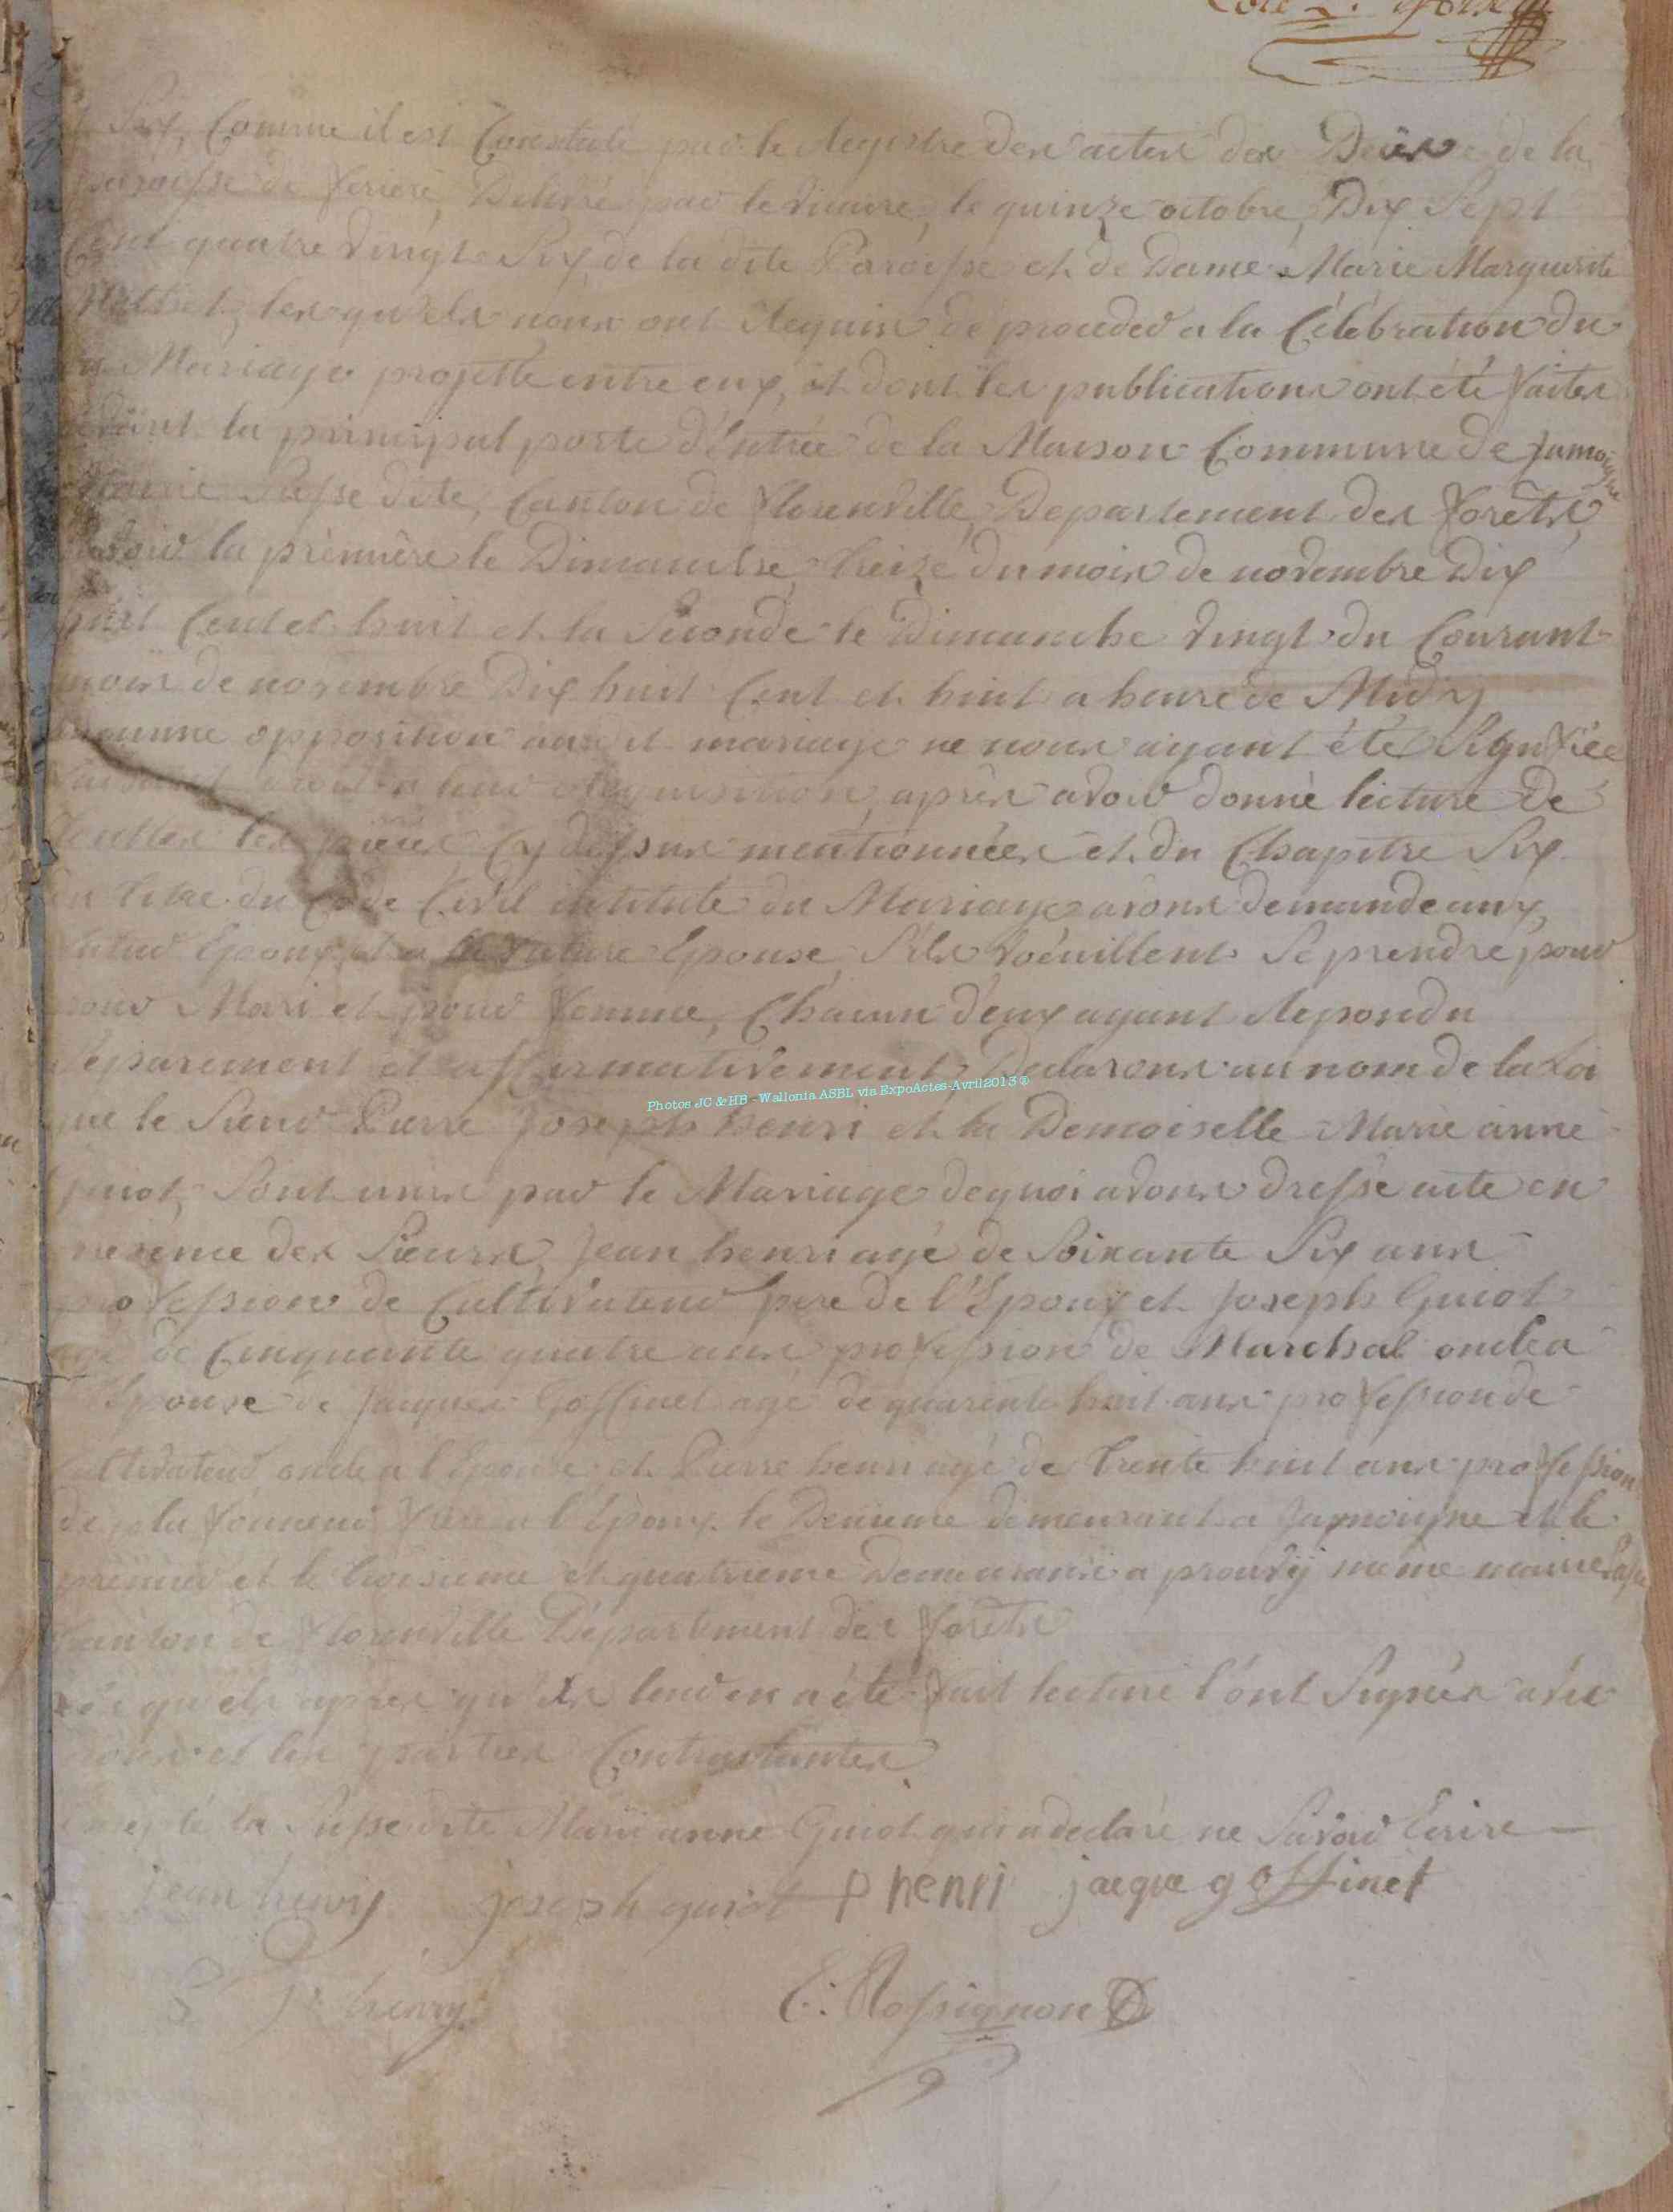 Six, Comme il est Constaté par le Registre des actes des Décès de la
paroisse de Delivré par le vicaire, le quinze octobre, Dix Sept
Cent quatre vingt Six, de la dite Paroisse et de Dame Marie Marguerite
lesquels nous ont Requis de proceder a la Célébration du
Mariage projetté entre eux, et dont les publications ont été faites
devant la principal porte d'Entrée de la Maison Commune de Jamoigne
Mairie Susse dite, Canton de florenville Departement des forêts,
savoir la prèmière le Dimanche treize du mois de novembre Dix
huit Cent et huit et la Seconde le Dimanche vingt du Courant
mois de novembre Dix huit Cent et huit a heure de Midy
aucunne opposition audit mariage ne nous ayant été Signifiée
faisant droit a leur Requisition, après avoir donné lecture de
touttes les pièces Cy dessus mentionnées et du Chapitre Six
du titre du Code Civil intitulé du Mariage avons demandé aux
futur Epoux et a la future Epouse, S'ils voëuillent Se prendre pour
pour Mari et pour femme, Chacun d'eux ayant Repondu
Séparement et affirmativement, Declarons au nom de la Loi
que le Sieur Pierre Joseph henri et la Demoiselle Marie anne
guiot, Sont unis par le Mariage dequoi avons dressé acte en
presence des Sieurs, Jean henri agé de Soixante Six ans
profession de Cultivateur pere de l'Epoux et Joseph Guiot
agé de Cinquante quatre ans profession de Marchal oncle a
l'Epouse de Jacques Goffinet agé de quarente huit ans profession de
Cultivateur oncle a l'Epouse et Pierre henri agé de trente huit ans profession
de frere a l'Epoux. le Deuxieme demeurant a Jamoigne et le
premier et le troisieme et quatrieme Demeurants a prouvÿ même mairie
Canton de florenville Département des forêts
Lesquels apres qu'ils leur en a été fait lecture l'ont Signés avec
nous et les parties Contractantes.
Excepté la Susse dite Marie anne Guiot qui a declaré ne Savoir Ecrire
jean henrij joseph guiot P henri jacque goffinet
P J henry E: Rossignon
Photos JC & HB - Wallonia ASBL via ExpoActes-Avril2013®